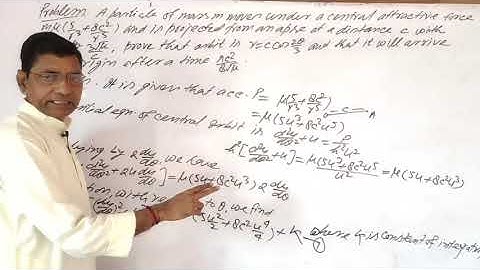 Problem: A particle of mass m moves under a central attractive force
mμ(5/r³ + 8c²/r⁵) and is projected from an apse at a distance c with
3√μ/c, prove that orbit is r = c cos 2θ/3 and that it will arrive
origin after a time πc²/8√μ
It is given that acc. P = μ(5/r³ + 8c²/r⁵)
c A
= μ(5u³ + 8c²u⁵)
eqn of central orbit is d²u/dθ² + u = P/h²u²
h²[d²u/dθ² + u] = μ(5u³ + 8c²u⁵)/u² = μ(5u + 8c²u³)
by 2du/dθ, we have
+ 2u du/dθ] = μ(5u + 8c²u³) 2 du/dθ
w.r. to θ, we find
(5u²/2 + 8c²u⁴/4) + k, where k is constant of integration
①